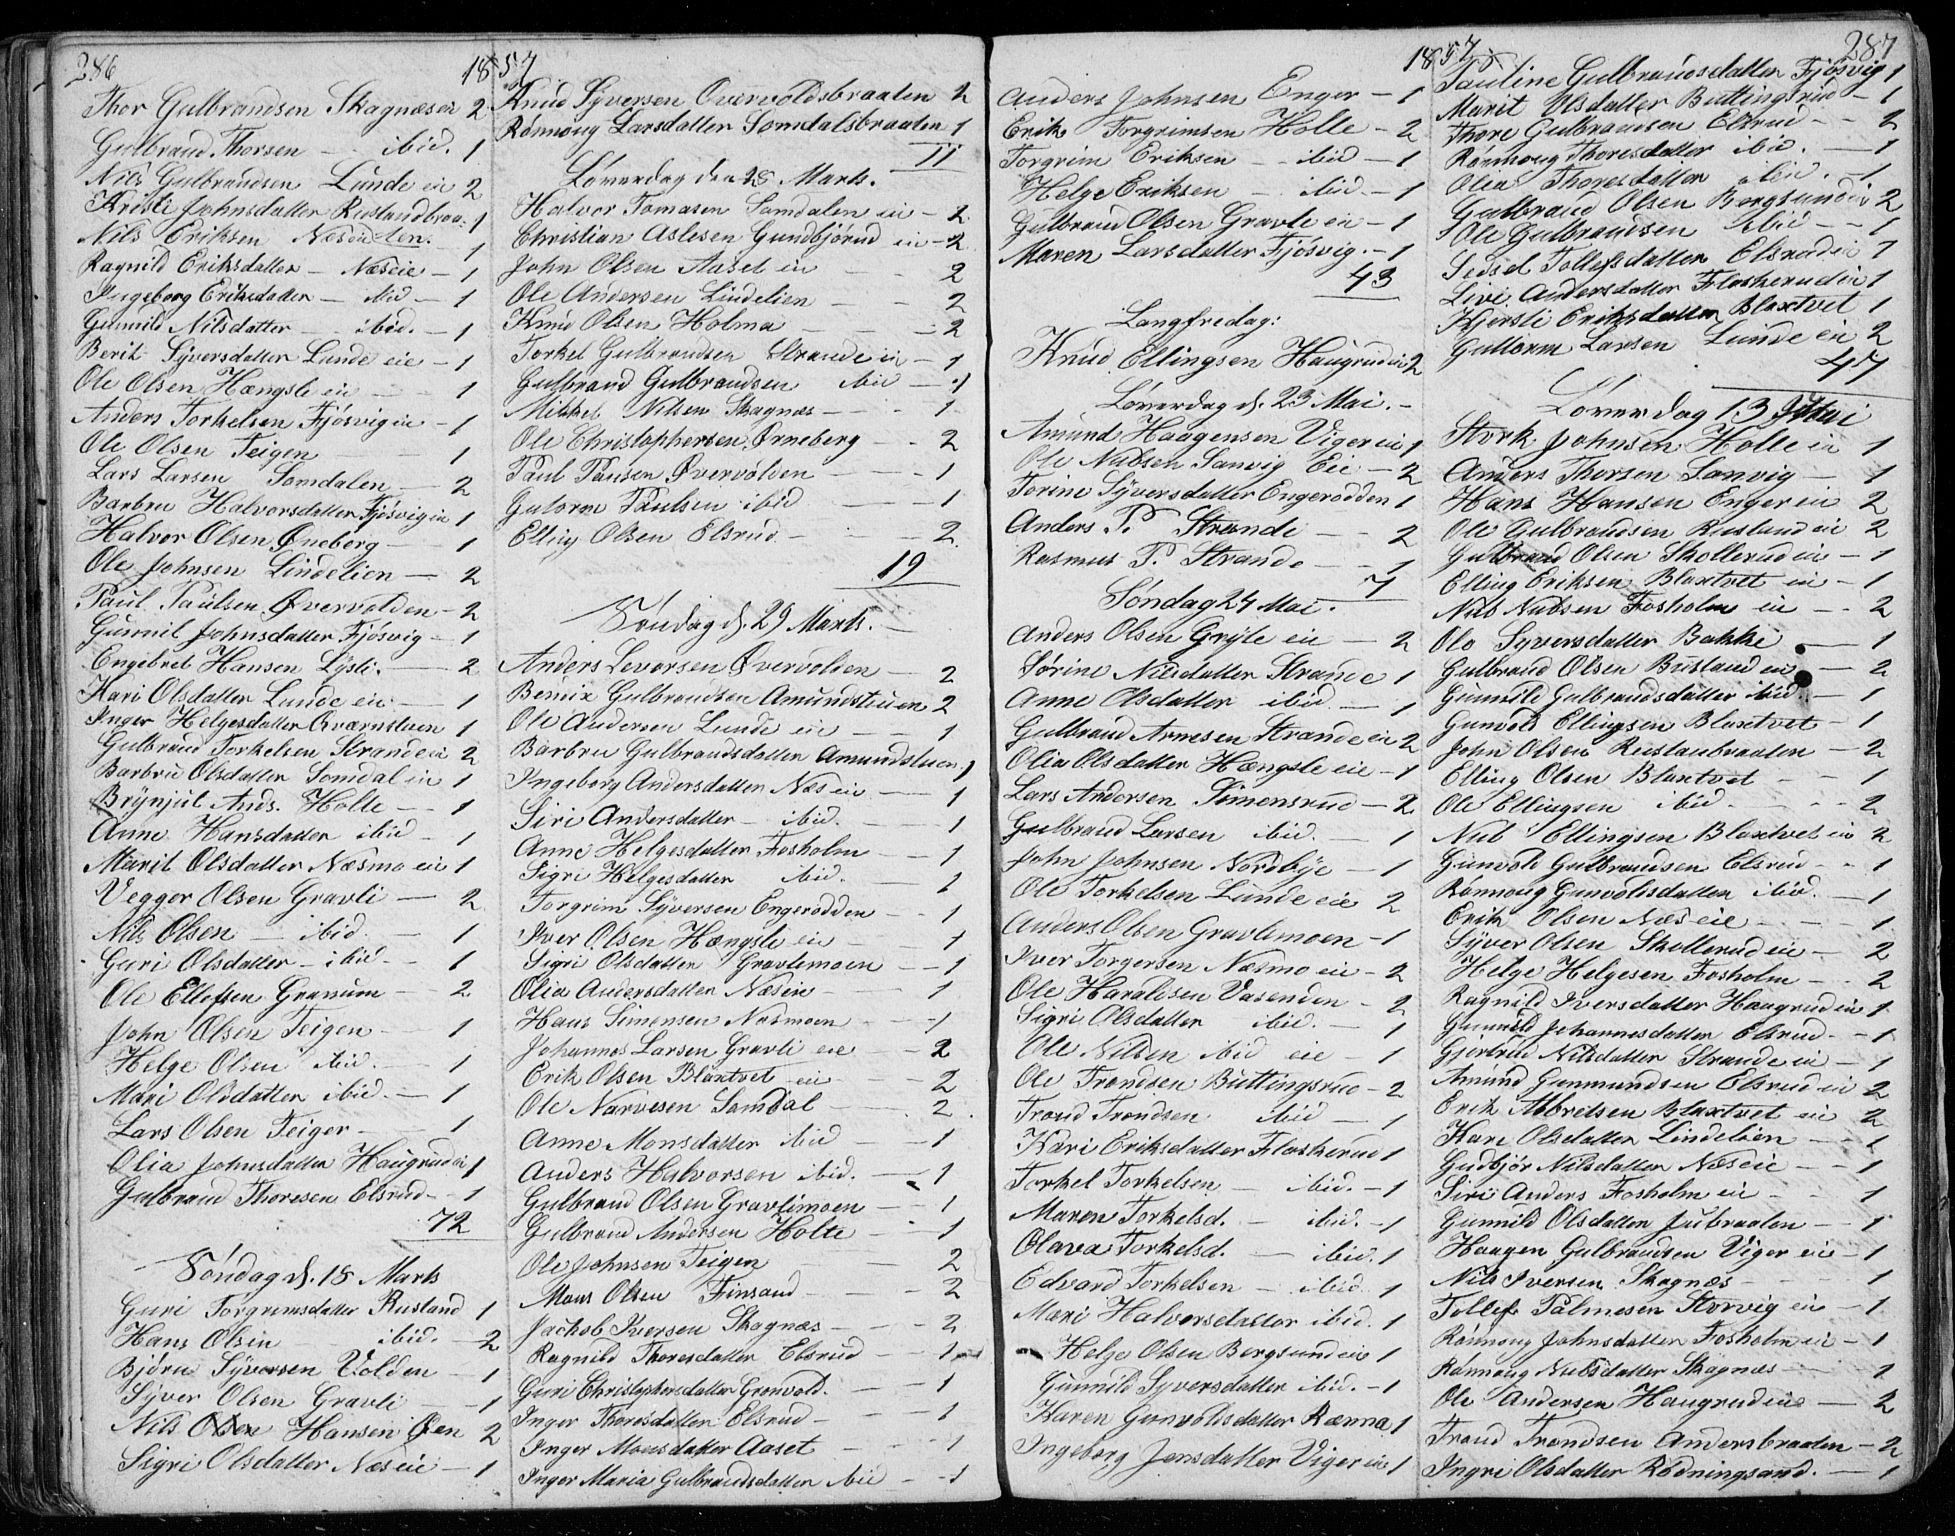 286
1857
Thor Gulbrandsen Skagnæsei 2
Gulbrand Thorsen — ibid. 1
Nils Gulbrandsen Lunde eie 2
Kristi Johnsdatter Rustandbraa- 1
Nils Eriksen Næseie ten. — 1
Ragnild Eriksdatter — Næseie — 1
Ingeborg Eriksdatter — ibid — 1
Gunnild Nilsdatter — ibid. — 1
Berit Syversdatter Lunde eie — 1
Ole Olsen Hængsle ei — 1
Anders Torkelsen Fjösvig ei — 1
Ole Olsen Teigen — 1
Lars Larsen Somdalen — 2
Barbru Halvorsdatter Fjösvig ei 1
Halvor Olsen Öneberg — 1
Ole Johnsen Lindelien — 2
Paul Paulsen Øvervolden — 2
Gunnil Johnsdatter Fjösvig — 1
Engebret Hansen Lysli. — 2
Kari Olsdatter Lunde eie — 1
Inger Helgesdatter Qværnstuen 1
Gulbrand Torkelsen Strande ei 2
Barbru Olsdatter Somdal ei 1
Brynjul Ands. Holte — 1
Anne Hansdatter ibid — 1
Marit Olsdatter Næsmo eie 1
Vegger Olsen Gravli — 2
Nils Olsen — ibid. — 1
Guri Olsdatter — ibid — 1
Ole Ellefsen Granum — 2
John Olsen Teigen — 1
Helge Olsen ibid. — 1
Mari Olsdatter ibid. — 1
Lars Olsen Teigen — 1
Olia Johnsdatter Haugrud ei 1
Gulbrand Thoresen Elsrud — 1
72
Söndag d. 15 Marts
Guri Torgrimsdatter Rustand 1
Hans Olsen ibid. — 2
Björn Syversen Volden — 1
Syver Olsen Gravli — 1
Nils Olsen Hansen Öen 2
Sigri Olsdatter Næseie — 1
Knud Syversen Overvoldsbraaten 2
Rönnoug Larsdatter Somdalsbraaten 1
11
Löverdag den 28 Marts.
Halvor Tomasen Somdalen ei — 2
Christian Aslesen Gundbjörud ei — 2
John Olsen Aaset ei — 2
Ole Andersen Lindelien — 2
Knud Olsen Holma — 2
Torkel Gulbrandsen Strande ei — 1
Gulbrand Gulbrandsen ibid — 1
Mikkel Nilsen Skagnæs — 1
Ole Christophersen Örneberg — 2
Paul Paulsen Øvervolden — 1
Gutorm Paulsen ibid — 1
Elling Olsen Elsrud — 2
19
Söndag d. 29 Marts. —
Anders Levorsen Øvervolden — 2
Gulbrandsen Amundstuen 2
Ole Andersen Lunde eie — 1
Barbru Gulbrandsdatter Amundstuen 1
Ingeborg Andersdatter Næs ei — 1
Siri Andersdatter — ibid. — 1
Anne Helgesdatter Fosholm — 1
Sigri Helgesdatter ibid. — 1
Torgrim Syversen Engerodden — 1
Iver Olsen Hængsle ei — 1
Sigri Olsdatter Gravlimoen — 1
Olia Andersdatter Næseie — 1
Hans Simensen Næsmoen — 1
Johannes Larsen Gravli eie — 2
Erik Olsen Blaxtvet ei — 2
Ole Narvesen Somdal — 2
Anne Monsdatter ibid — 1
Anders Halvorsen ibid. — 1
Gulbrand Olsen Gravlimoen — 1
Gulbrand Andersen Holte — 1
Ole Johnsen Teigen — 2
Mons Olsen Finsand — 2
Jachob Iversen Skagnæs — 2
Ragnild Thoresdatter Elsrud — 1
Guri Christophersdatter Grønvold. — 1
Inger Thoresdatter Elsrud — 1
Inger Monsdatter Aaset — 1
Inger Maria Gulbrandsdatter ibid — 1
1857
287
Anders Johnsen Enger — 1
Erik Torgrimsen Holte — 2
Torgrim Eriksen — ibid — 1
Helge Eriksen — ibid. — 1
Gulbrand Olsen Gravle ei — 1
Maren Larsdatter Fjösvig. — 1
43
Langfredag:
Knud Ellingsen Haugrud ei 2
Löverdag d. 23 Mai. —
Amund Haagensen Viger ei 1
Ole Nubsen Sanvig Eie — 2
Torine Syversdatter Engerodden 1
Anders P. Strande — 2
Rasmus P. Strande — 1
7
Söndag 24 Mai.
Anders Olsen Gryte ei — 2
Sörine Nilsdatter Strande 1
Anne Olsdatter ibid. — 1
Gulbrand Arnesen Strande ei 2
Olia Olsdatter Hængsle eie — 1
Lars Andersen Simensrud — 2
Gulbrand Larsen ibid. — 1
John Johnsen Nordbye — 1
Ole Torkelsen Lunde eie 2
Anders Olsen Gravlimoen — 1
Iver Torgersen Næsmo eie — 2
Ole Haraldsen Vasenden — 2
Sigri Olsdatter ibid. — 1
Ole Nilsen ibid eie — 1
Ole Trondsen Buttingsrud — 2
Trond Trondsen ibid — 1
Kari Eriksdatter Flaskerud 1
Torkel Torkelsen — ibid. — 1
Maren Torkelsd. — ibid. — 1
Olava Torkelsd. — ibid. 1
Edvard Torkelsen — ibid. 1
Mari Halvorsdatter ibid. 1
Helge Olsen Bergsund eie 1
Gunnild Syversdatter ibid. — 1
Karen Gunvoldsdatter Rænna 1
Ingeborg Jensdatter Viger ei 1
Pauline Gulbrandsdatter Fjösvig 1
Marit Olsdatter Buttingsrud — 1
Thore Gulbrandsen Elsrud — 2
Rönnoug Thoresdatter ibid. — 1
Olia Thoresdatter ibid. — 1
Gulbrand Olsen Bergsund ei 2
Ole Gulbrandsen ibid — 1
Sedsel Tollefsdatter Elsrud ei 1
Livi Andersdatter Flaskerud ei 1
Kjersti Eriksdatter Blaxtvet 1
Guttorm Larsen Lunde ei 2
47
Löverdag 13 Juni
Stork Johnsen Holte ei 1
Anders Thorsen Sanvig — 1
Hans Hansen Enger ei 2
Ole Gulbrandsen Rustand ei 2
Gulbrand Olsen Skollerud ei — 1
Elling Eriksen Blaxtvet ei — 1
Nub Nubsen Fosholm ei — 2
Olo Syversdatter Bakke — 1
Gulbrand Olsen Rustand ei — 2
Gunnild Gulbrandsdatter ibid. — 1
Gunvold Ellingsen Blaxtvet — 1
John Olsen Rustanbraaten — 2
Elling Olsen Blaxtvet — 1
Ole Ellingsen ibid. — 2
Nub Ellingsen Blaxtvet ei 2
Gunvold Gulbrandsen Elsrud — 1
Rönnoug Gunvoldsdatter ibid. — 1
Erik Olsen Næs eie — 1
Syver Olsen Skollerud ei — 2
Helge Helgesen Fosholm — 2
Ragnild Iversdatter Haugrud ei 1
Gunnild Johannesdatter Elsrud. — 1
Gjertrud Nilsdatter Strande ei — 1
Amund Gunmundsen Elsrud ei 2
Erik Albretsen Blaxtvet ei 2
Kari Olsdatter Lindelien — 1
Gudbjör Nilsdatter Næseie — 1
Siri Anders Fosholm ei — 1
Gunnild Olsdatter Jubraaten — 1
Haagen Gulbrandsen Viger ei — 1
Nils Iversen Skagnæs — 1
Tollef Palmesen Storvig ei — 1
Rönnoug Johnsdatter Fosholm ei — 1
Rönnoug Nubsdatter Skagnæs — 1
Ole Andersen Haugrud ei — 2
Trond Trondsen Andersbraaten — 2
Ingri Olsdatter Rödningsand. — 1